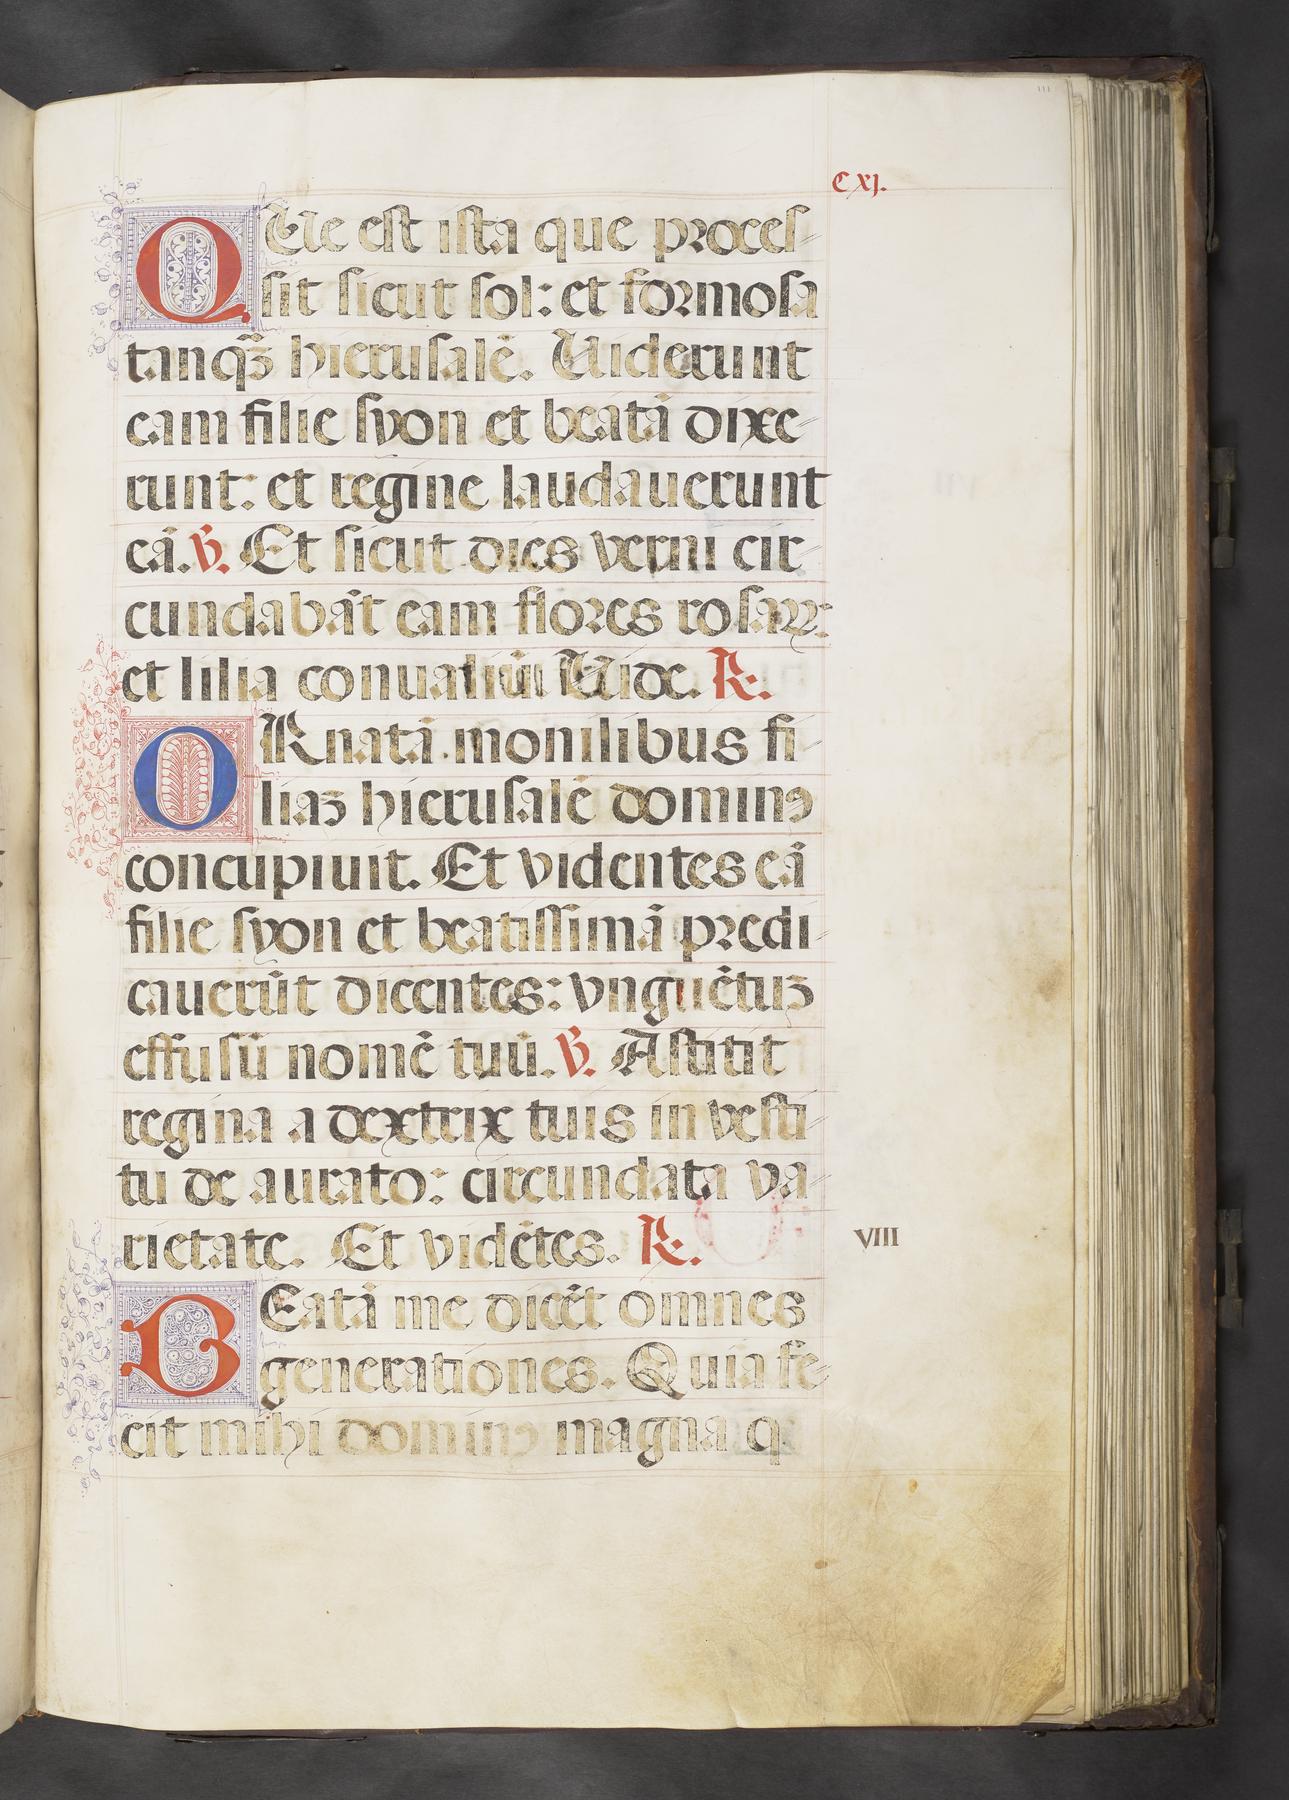 CXJ.
QUe est ista que proces-
sit sicut sol: et formosa
tanqȝ hierusalē. Uiderunt
eam filie syon et beatā dixe-
runt: et regine laudauerunt
eā. ℣. Et sicut dies verni cir-
cundabāt eam flores rosaꝝ:
et lilia conualiūi Uide. ℟.
ORnatā monilibus fi-
liaȝ hierusalē dominꝰ
concupiuit. Et videntes eā
filie syon et beatissimā predi-
cauerūt dicentes: vnguētuȝ
effusū nomē tuū. ℣. Astitit
regina a dextrix tuis in vesti-
tu de aurato: circundata va-
rietate. Et vidētes. ℟.
VIII
BEatā me dicēt omnes
generationes. Quia fe-
cit mihi dominꝰ magna q